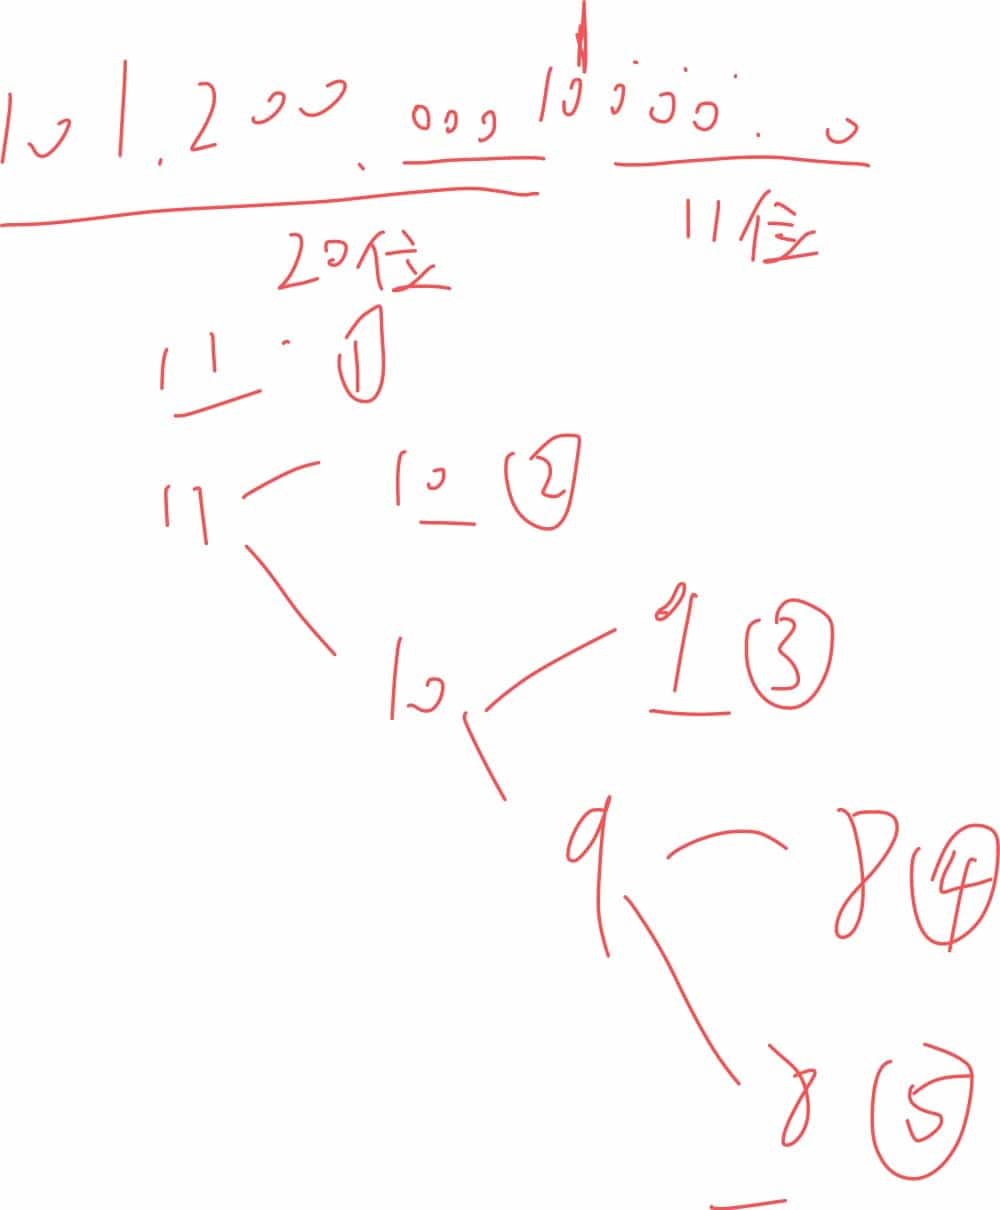 101.200.000 10000.0
20位 11位
11 · ①
11 10 ②
10 9 ③
9 8 ④
8 ⑤